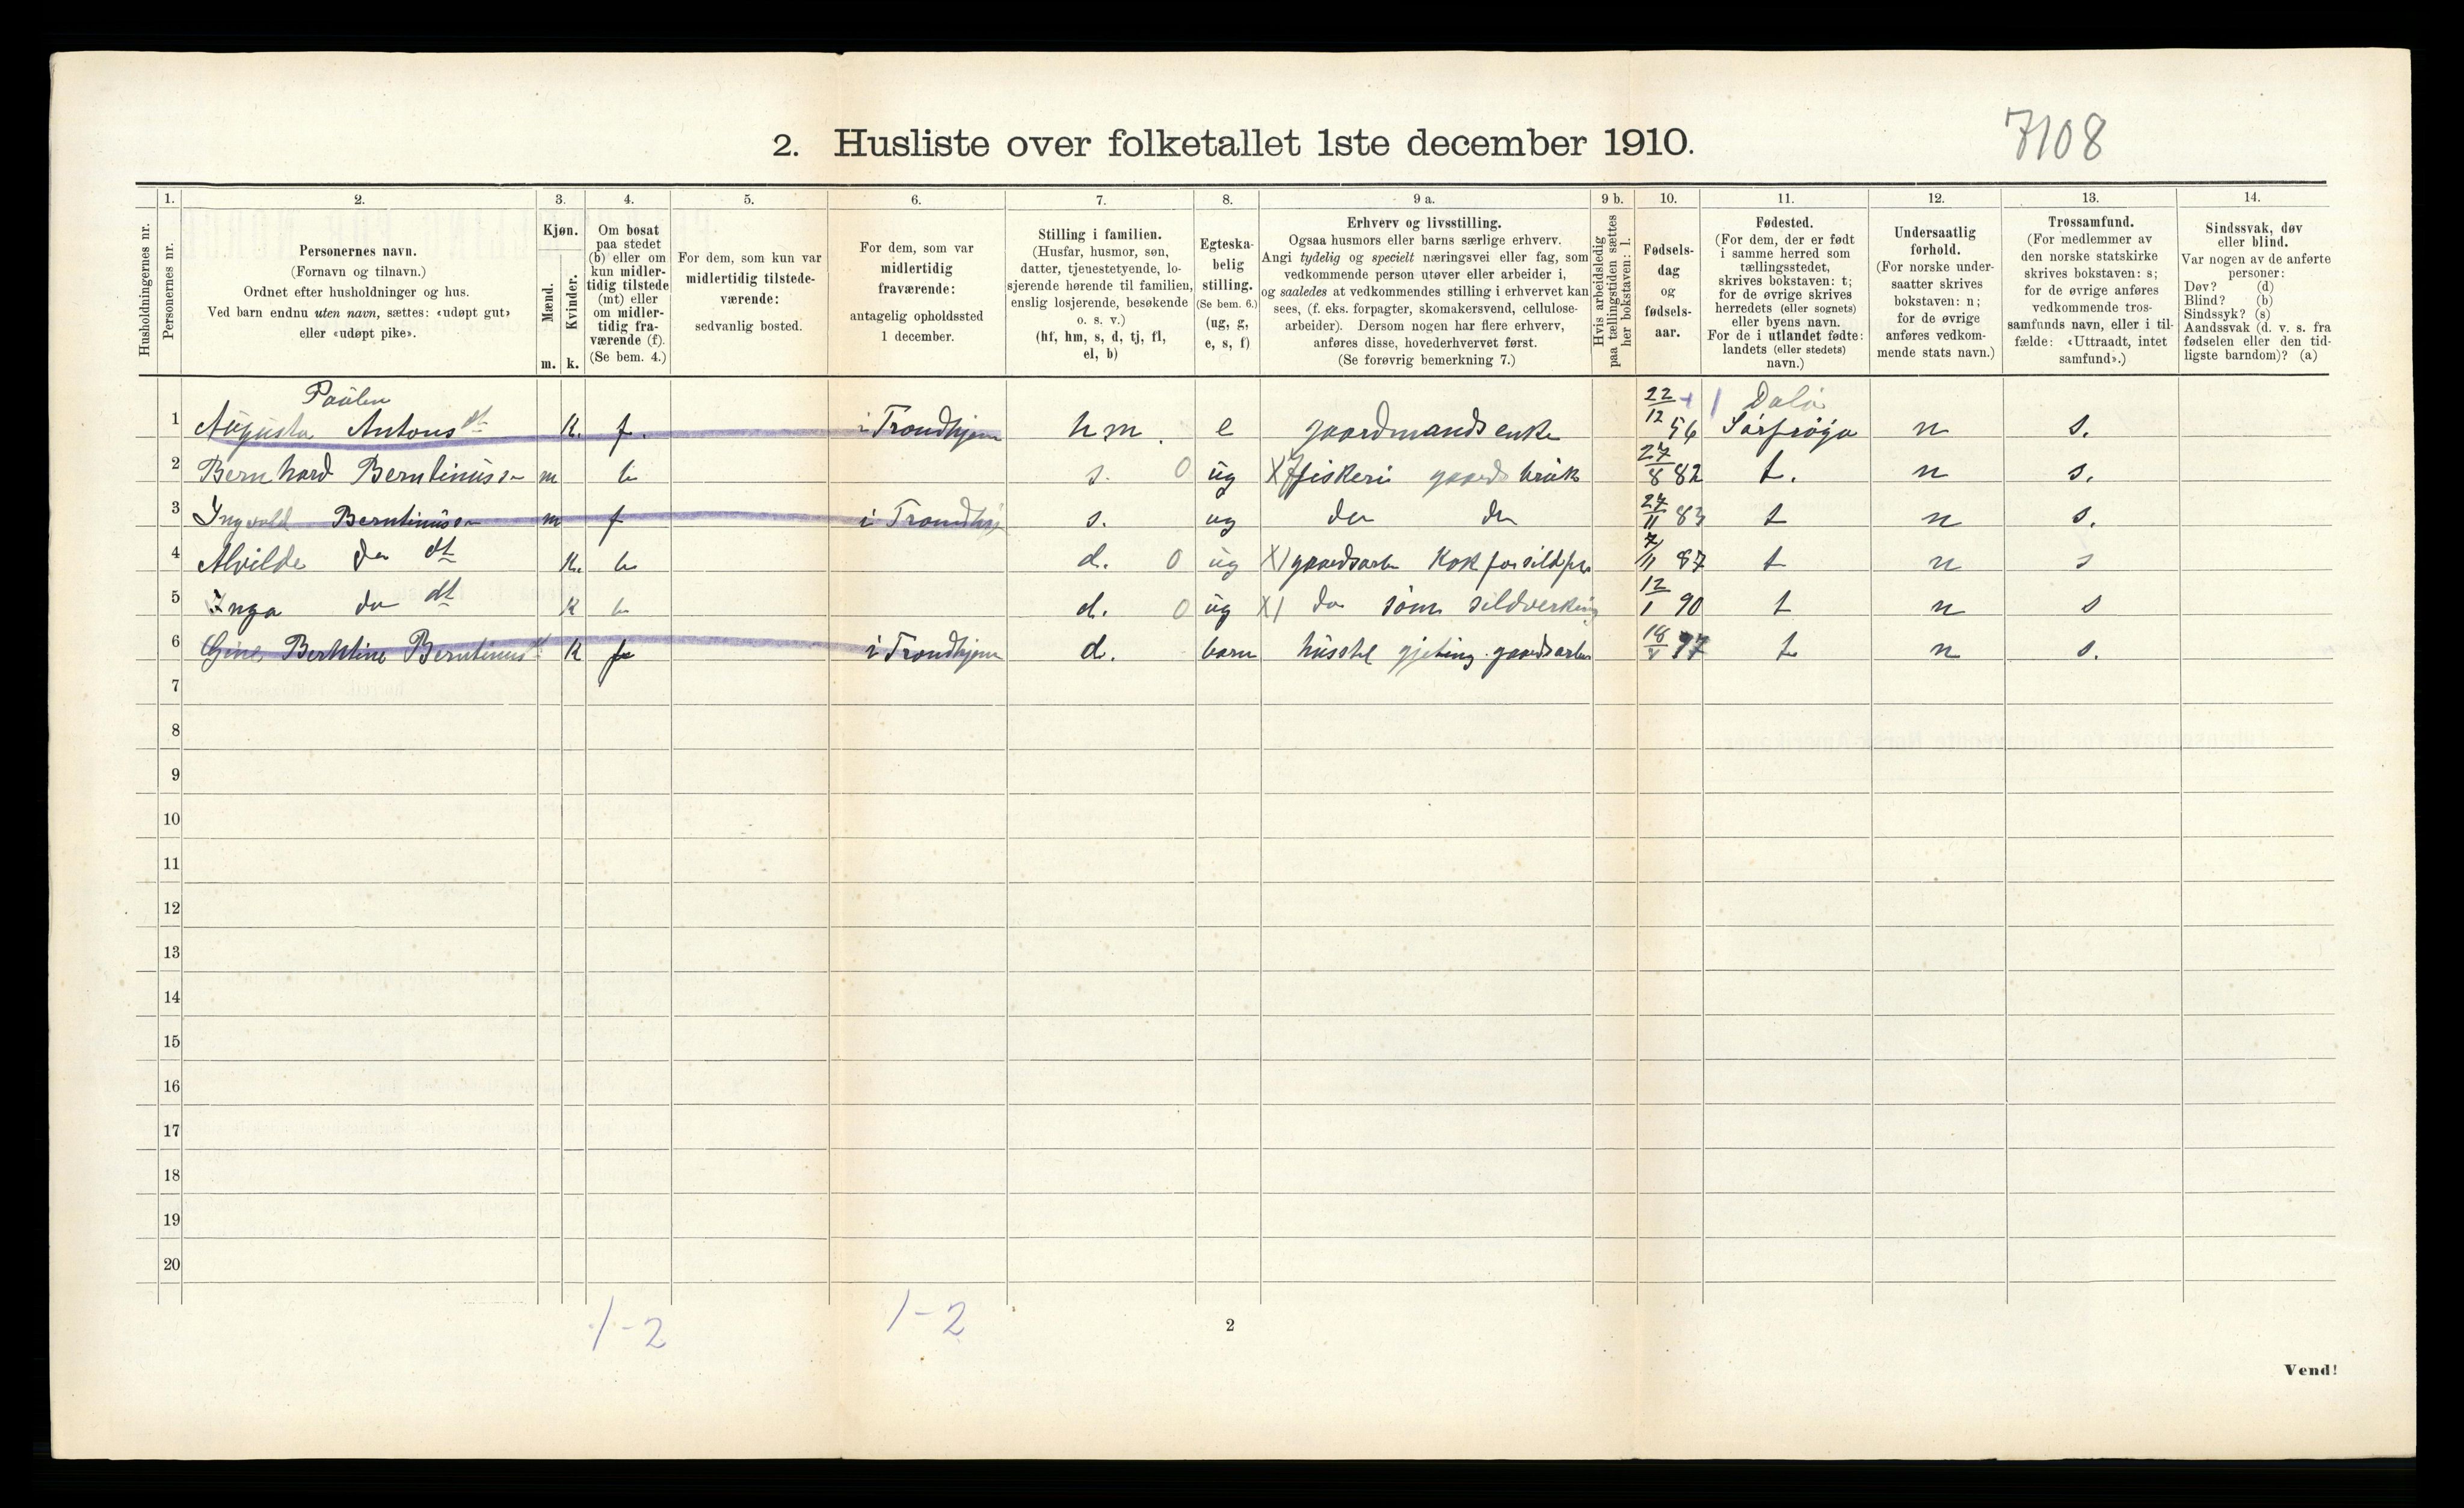 7108
2. Husliste over folketallet 1ste december 1910.
Husholdningernes nr.
1. Personernes nr.
2. Personernes navn. (Fornavn og tilnavn.) Ordnet efter husholdninger og hus. Ved barn endnu uten navn, sættes: «udøpt gut» eller «udøpt pike».
3. Kjøn. Mænd. m. Kvinder. k.
4. Om bosat paa stedet (b) eller om kun midlertidig tilstede (mt) eller om midlertidig fraværende (f). (Se bem. 4.)
5. For dem, som kun var midlertidig tilstedeværende: sedvanlig bosted.
6. For dem, som var midlertidig fraværende: antagelig opholdssted 1 december.
7. Stilling i familien. (Husfar, husmor, søn, datter, tjenestetyende, losjerende hørende til familien, enslig losjerende, besøkende o. s. v.) (hf, hm, s, d, tj, fl, el, b)
8. Egteskabelig stilling. (Se bem. 6.) (ug, g, e, s, f)
9 a. Erhverv og livsstilling. Ogsaa husmors eller barns særlige erhverv. Angi tydelig og specielt næringsvei eller fag, som vedkommende person utøver eller arbeider i, og saaledes at vedkommendes stilling i erhvervet kan sees, (f. eks. forpagter, skomakersvend, cellulosearbeider). Dersom nogen har flere erhverv, anføres disse, hovederhvervet først. (Se forøvrig bemerkning 7.)
9 b. Hvis arbeidsledig paa tællingstiden sættes her bokstaven: l.
10. Fødselsdag og fødselsaar.
11. Fødested. (For dem, der er født i samme herred som tællingsstedet, skrives bokstaven: t; for de øvrige skrives herredets (eller sognets) eller byens navn. For de i utlandet fødte: landets (eller stedets) navn.)
12. Undersaatlig forhold. (For norske undersaatter skrives bokstaven: n; for de øvrige anføres vedkommende stats navn.)
13. Trossamfund. (For medlemmer av den norske statskirke skrives bokstaven: s; for de øvrige anføres vedkommende trossamfunds navn, eller i tilfælde: «Uttraadt, intet samfund».)
14. Sindssvak, døv eller blind. Var nogen av de anførte personer: Døv? (d) Blind? (b) Sindssyk? (s) Aandssvak (d. v. s. fra fødselen eller den tidligste barndom)? (a)
1 Augusta Antons dt K. f. i Trondhjem hm. e gaardmandsenke 22/12 56 Sørfrøya n s.
2 Bernhard Berntinuss m b s. 0 ug fiskeri gaardsbruk 27/8 82 t. n s.
3 Ingvald Berntinuss m f i Trondhj s. ug do do 27/11 83 t n s.
4 Alvilde do dt K. b d. 0 ug gaardsarb Kok for sildf 7/11 87 t n s
5 Inga do dt K b d. 0 ug do som sildverking 12/1 90 t n s
6 Gine Berntine Berntinus K f i Trondhjem d. barn husstel gjeting gaardsarb 18/ 97 t n s.
7
8
9
10
11
12
13
14
15
16
17
18
19
20
1-2 1-2
2
Vend!